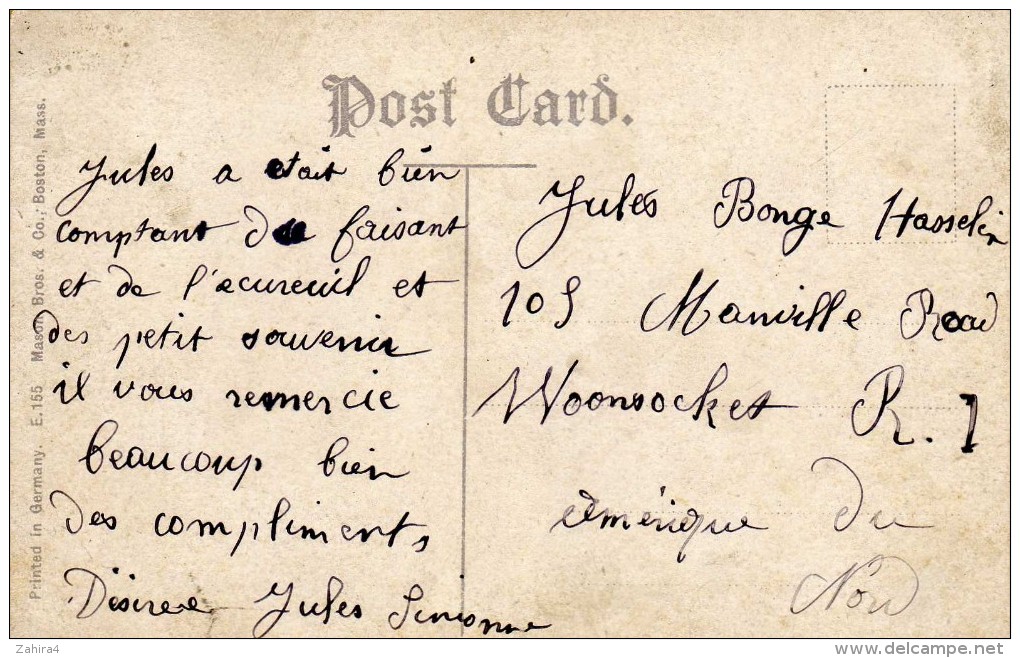 Post Card.
Jules a etait bien
comptant du faisant
et de l'ecureuil et
des petit souvenir
il vous remercie
beaucoup bien
des compliments
Désiree Jules Simonne
Jules Bonge Hasselin
105 Manville Road
Woonsocket R. I
amérique du
Nord
Printed in Germany. E.155 Mason Bros. & Co., Boston, Mass.
Zahira4
delcampe.net